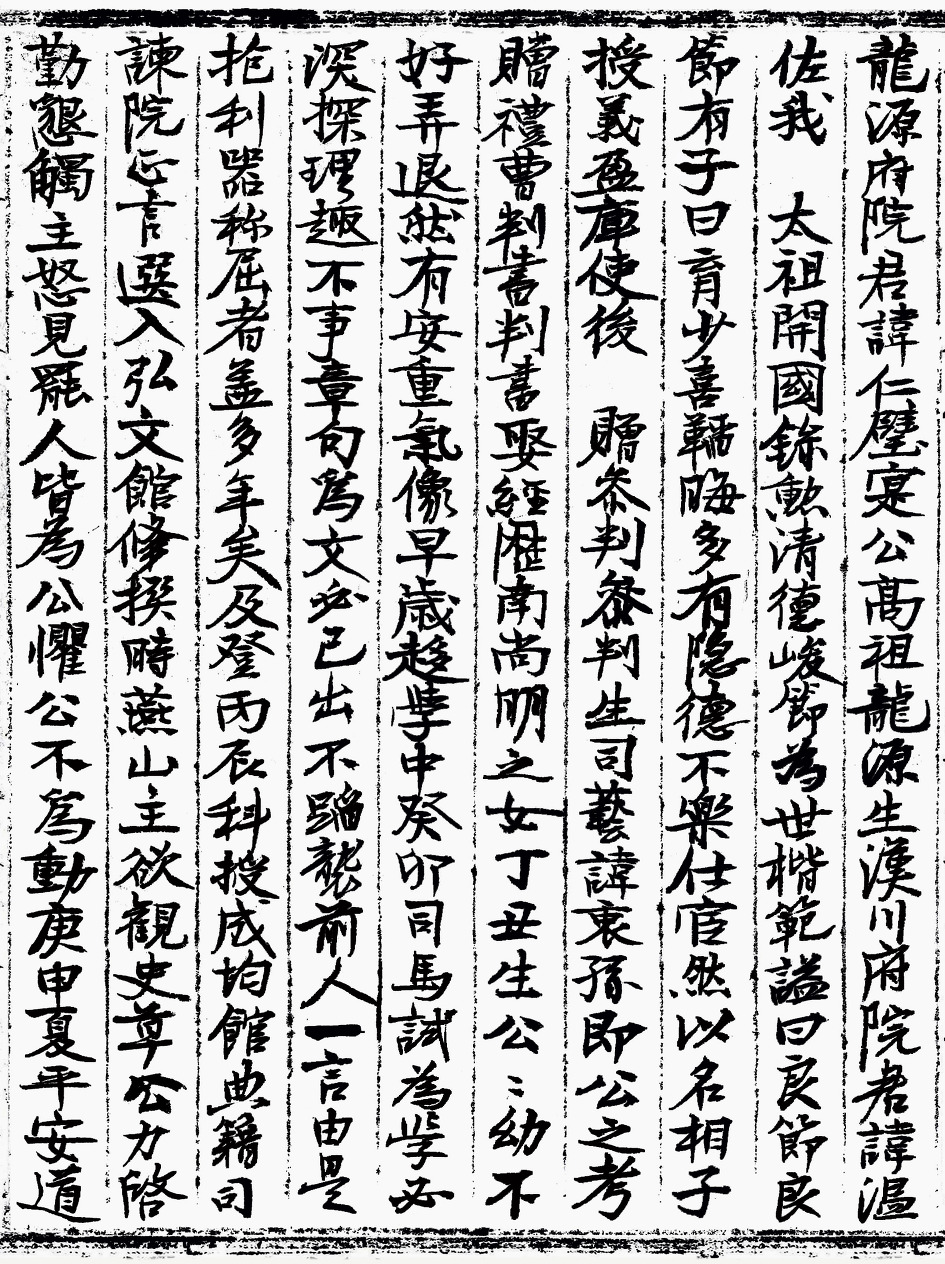 龍源府院君諱仁璧寔公高祖龍源生漢川府院君諱溫
佐我　太祖開國錄勳清德峻節為世楷範謚曰良節良
節有子曰育少喜韜晦多有隐德不樂仕宦然以名相子
授義盈庫使後　贈叅判叅判生司藝諱衷孫即公之考
贈禮曹判書判書娶經歷南尚明之女丁丑生公〻幼不
好弄退然有安重氣像早歲趍學中癸卯司馬試為學必
深探理趣不事章句為文必己出不蹈襲前人一言由是
抱利器称屈者盖多年矣及登丙辰科授成均館典籍司
諫院正言選入弘文館修撰時燕山主欲觀史草公力啓
勤懇觸主怒見罷人皆為公懼公不為動庚申夏平安道